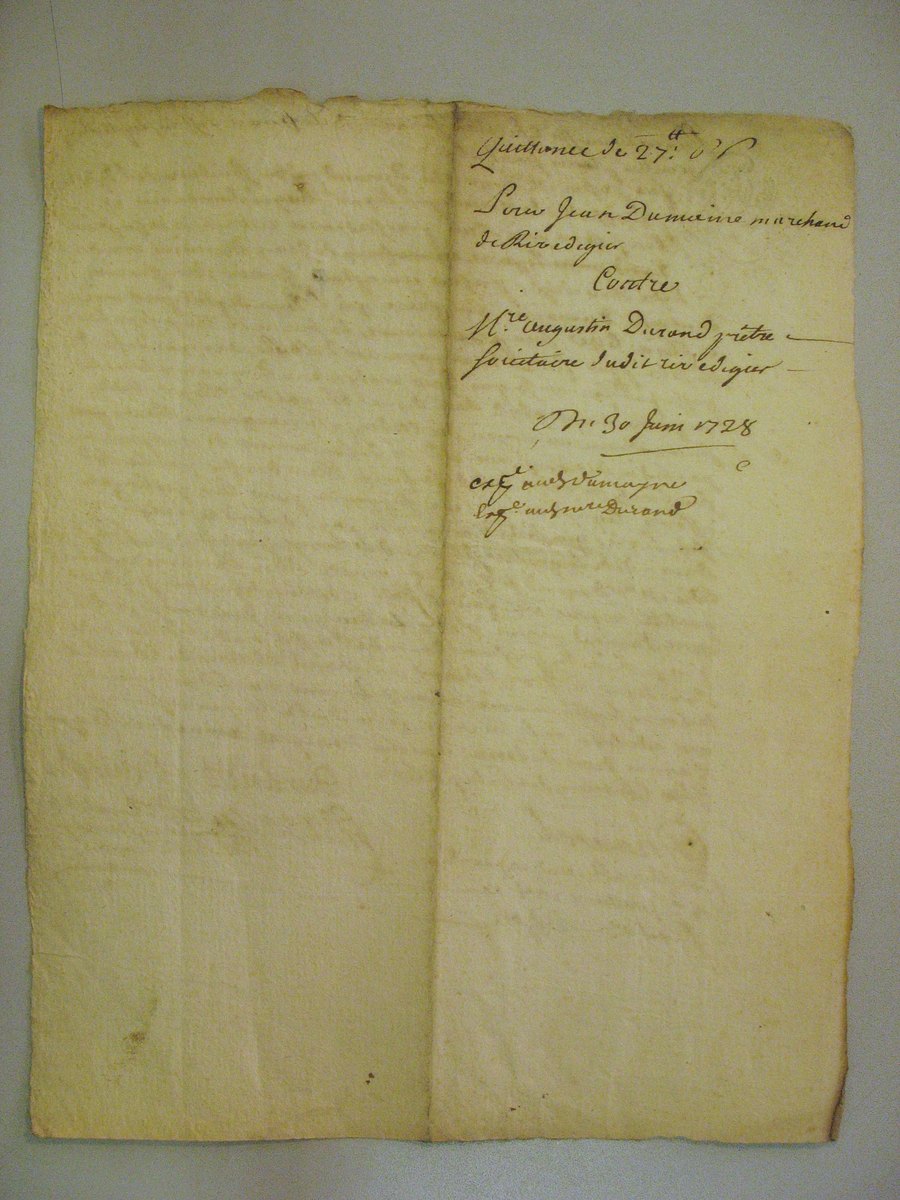 Quittance de 27:₶ 6ˢ
Pour Jean Dumaine marchand
de Rivedigier
Contre
Mre augustin Durand prêtre
sociétaire dudit rivedigier
Du 30 Juin 1728
exp.e aud Dumayne
Exp.e aud mre Durand